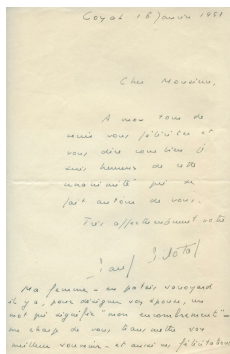 Coyat 16 Janvier 1951
Cher Monsieur,
A mon tour de
venir vous féliciter et
vous dire combien je
suis heureux de cette
unanimité qui se
fait autour de vous.
Très affectueusement votre
Ma femme - en patois savoyard
il y a, pour désigner son épouse, un
mot qui signifie "mon encombrement" -
me charge de vous transmettre son
meilleur souvenir - et aussi ses félicitations